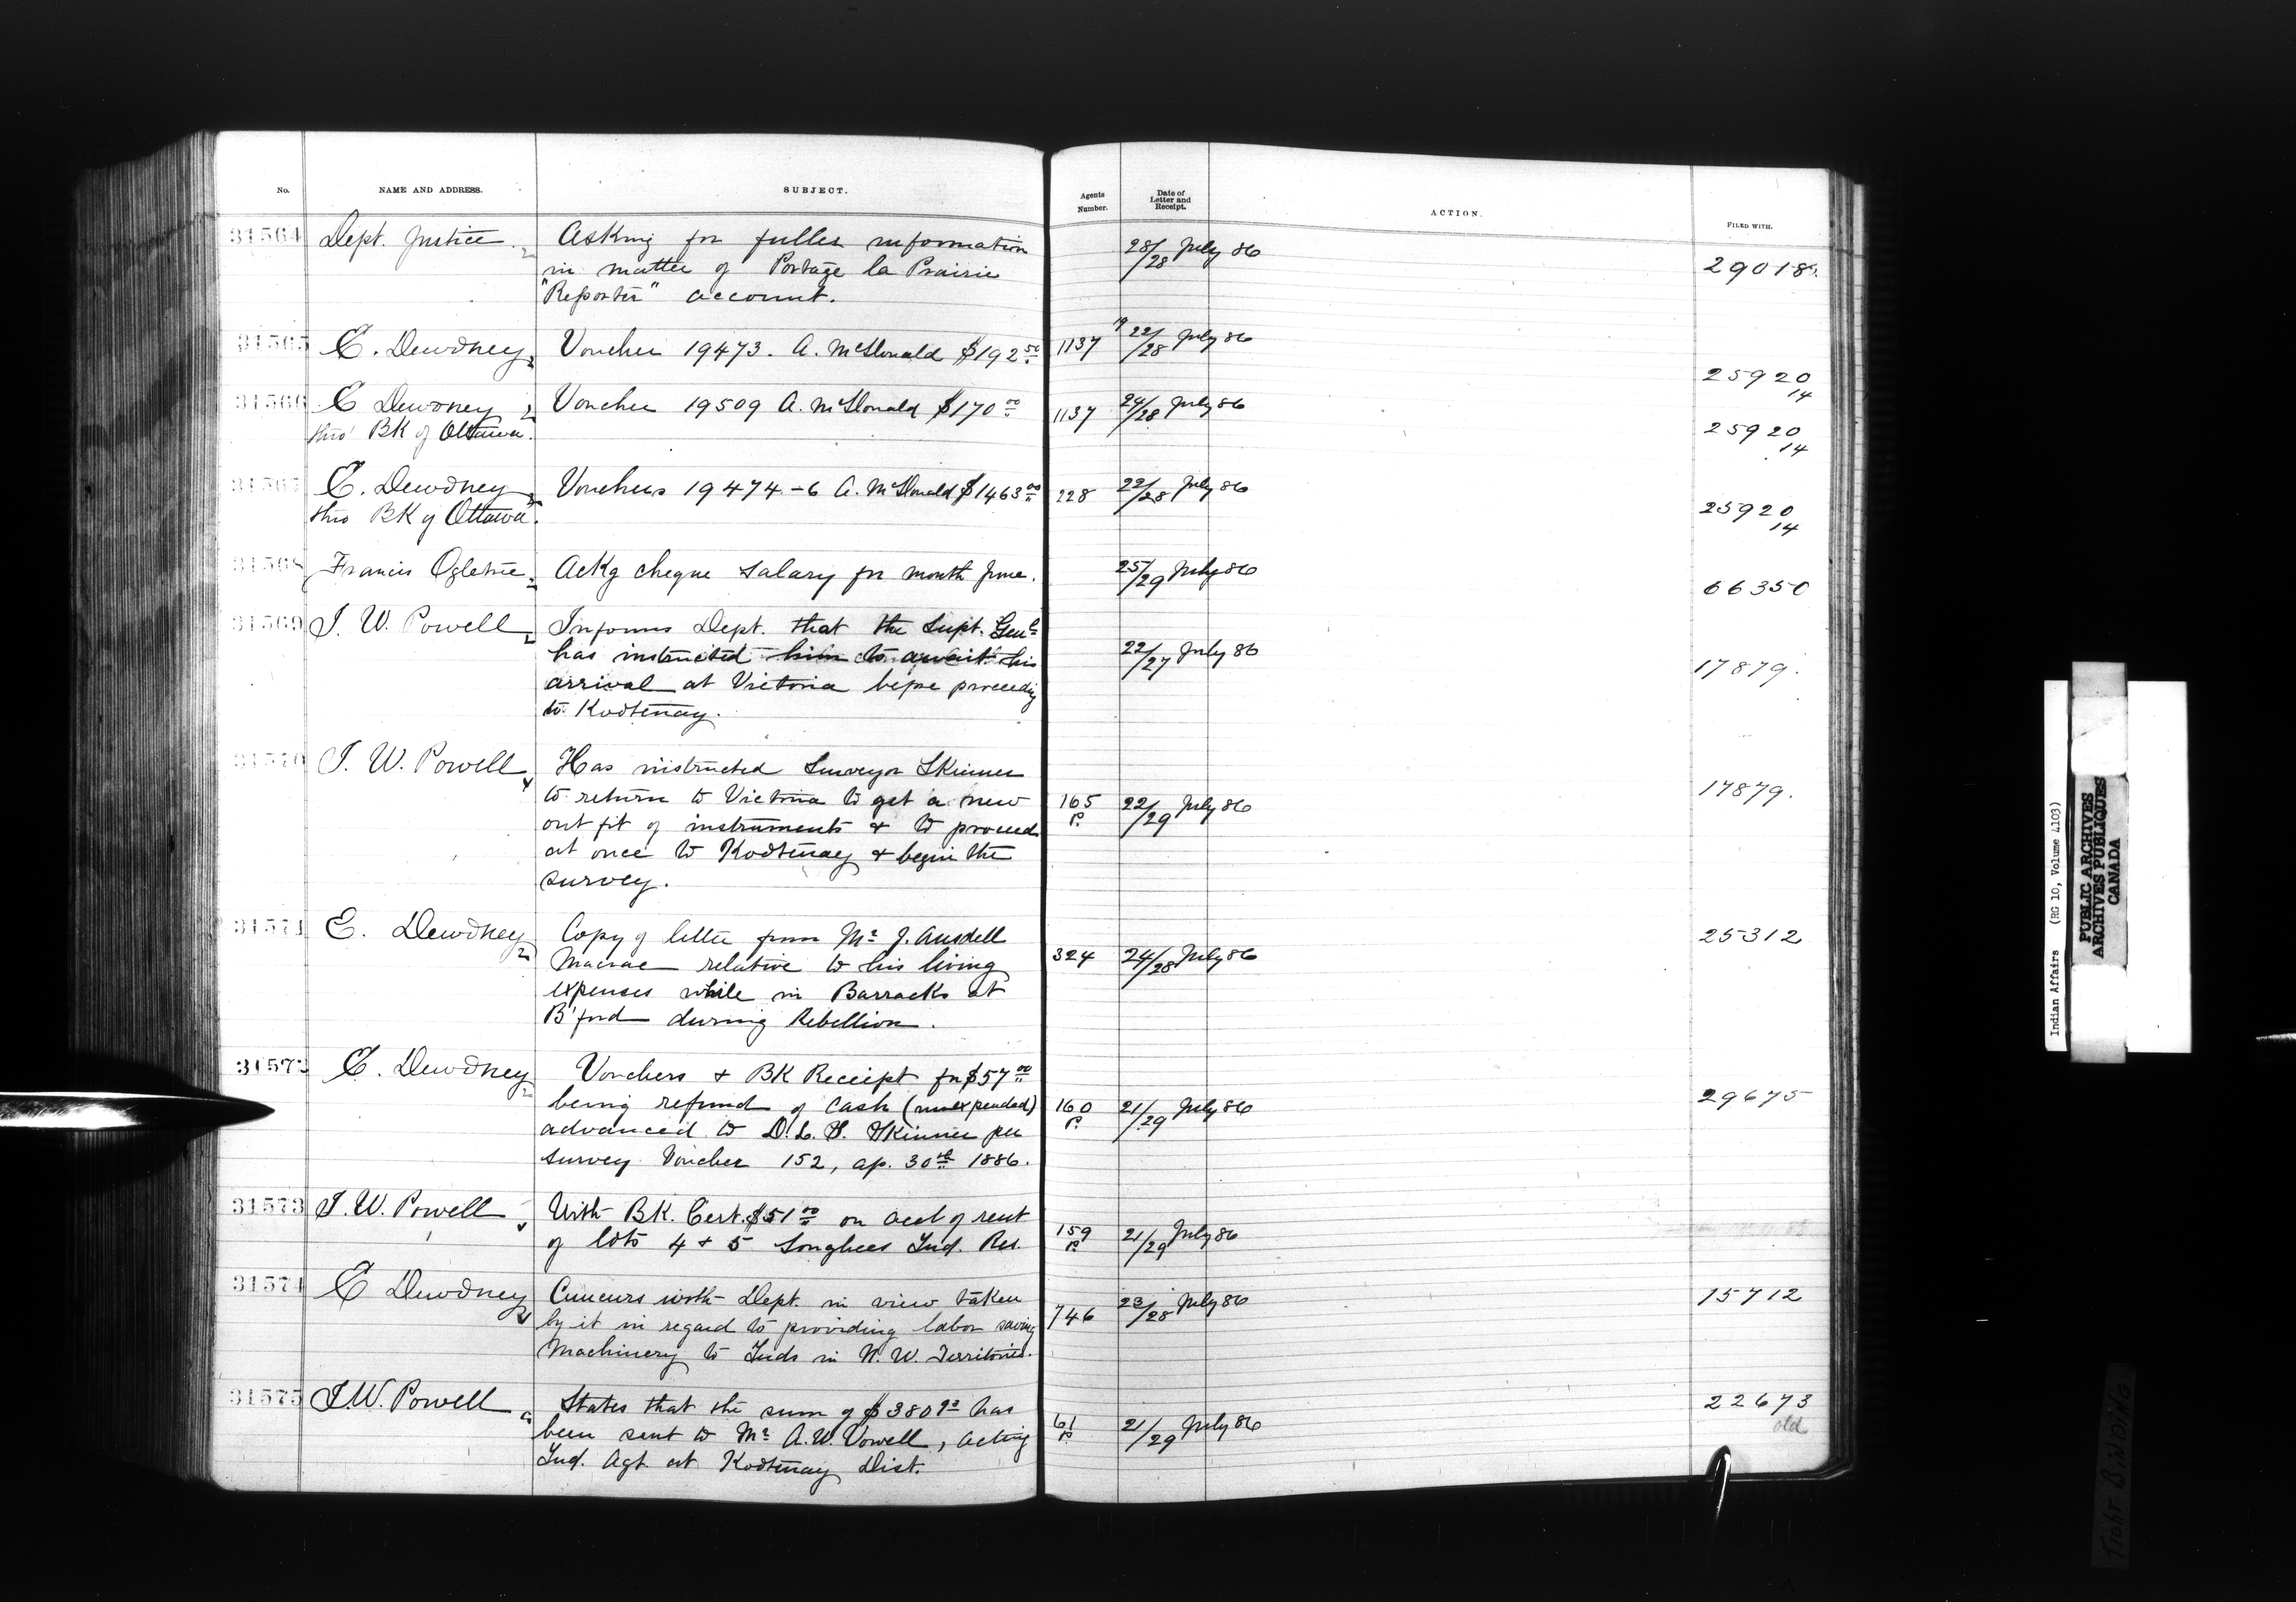 No. NAME AND ADDRESS. SUBJECT. Agents Number. Date of Letter and Receipt. ACTION. FILED WITH.
31564 Dept. Justice Asking for fuller information 28/28 July 86 29018
in matter of Portage la Prairie
"Reporter" account.
31565 E. Dewdney Voucher 19473. A. McDonald $192 50 1137 19 22/28 July 86 25920/14
31566 E Dewdney Voucher 19509 A. McDonald $170 00 1137 24/28 July 86 25920/14
thro' BK of Ottawa.
31567 E. Dewdney Vouchers 19474-6 A. McDonald $1463 00 228 22/28 July 86 25920/14
thro BK of Ottawa.
31568 Francis Ogletrie Ackg cheque salary for month June. 25/29 July 86 66350
31569 I. W. Powell Informs Dept. that the Supt. Genl 22/27 July 86 17879.
has instructed him to await his
arrival at Victoria before proceedg
to Kootenay.
31570 I. W. Powell Has instructed Surveyor Skinner 165 P. 22/29 July 86 17879.
to return to Victoria to get a new
out fit of instruments & to proceed
at once to Kootenay & begin the
survey.
31571 E. Dewdney Copy of letter from Mr J. Ansdell 324 24/28 July 86 25312
Macrae relative to his living
expenses while in Barracks at
B'ford during Rebellion.
31572 E. Dewdney Vouchers & BK Receipt for $57 00 160 P. 21/29 July 86 29675
being refund of cash (unexpended)
advanced to D. L. S. Skinner per
survey Voucher 152, ap. 30th 1886.
31573 I. W. Powell With BK. Cert. $51 00 on acct of rent 159 P. 21/29 July 86
of lots 4 & 5 Songhees Ind. Res.
31574 E Dewdney Concurs with Dept. in view taken 746 23/28 July 86 15712
by it in regard to providing labor saving
Machinery to Inds in N. W. Territories.
31575 I. W. Powell States that the sum of $380 has 61 P. 21/29 July 86 22673
been sent to Mr A. W. Vowell, acting old
Ind. Agt. at Kootenay Dist.
Indian Affairs (RG 10, Volume 4103)
PUBLIC ARCHIVES
ARCHIVES PUBLIQUES
CANADA
TIGHT BINDING